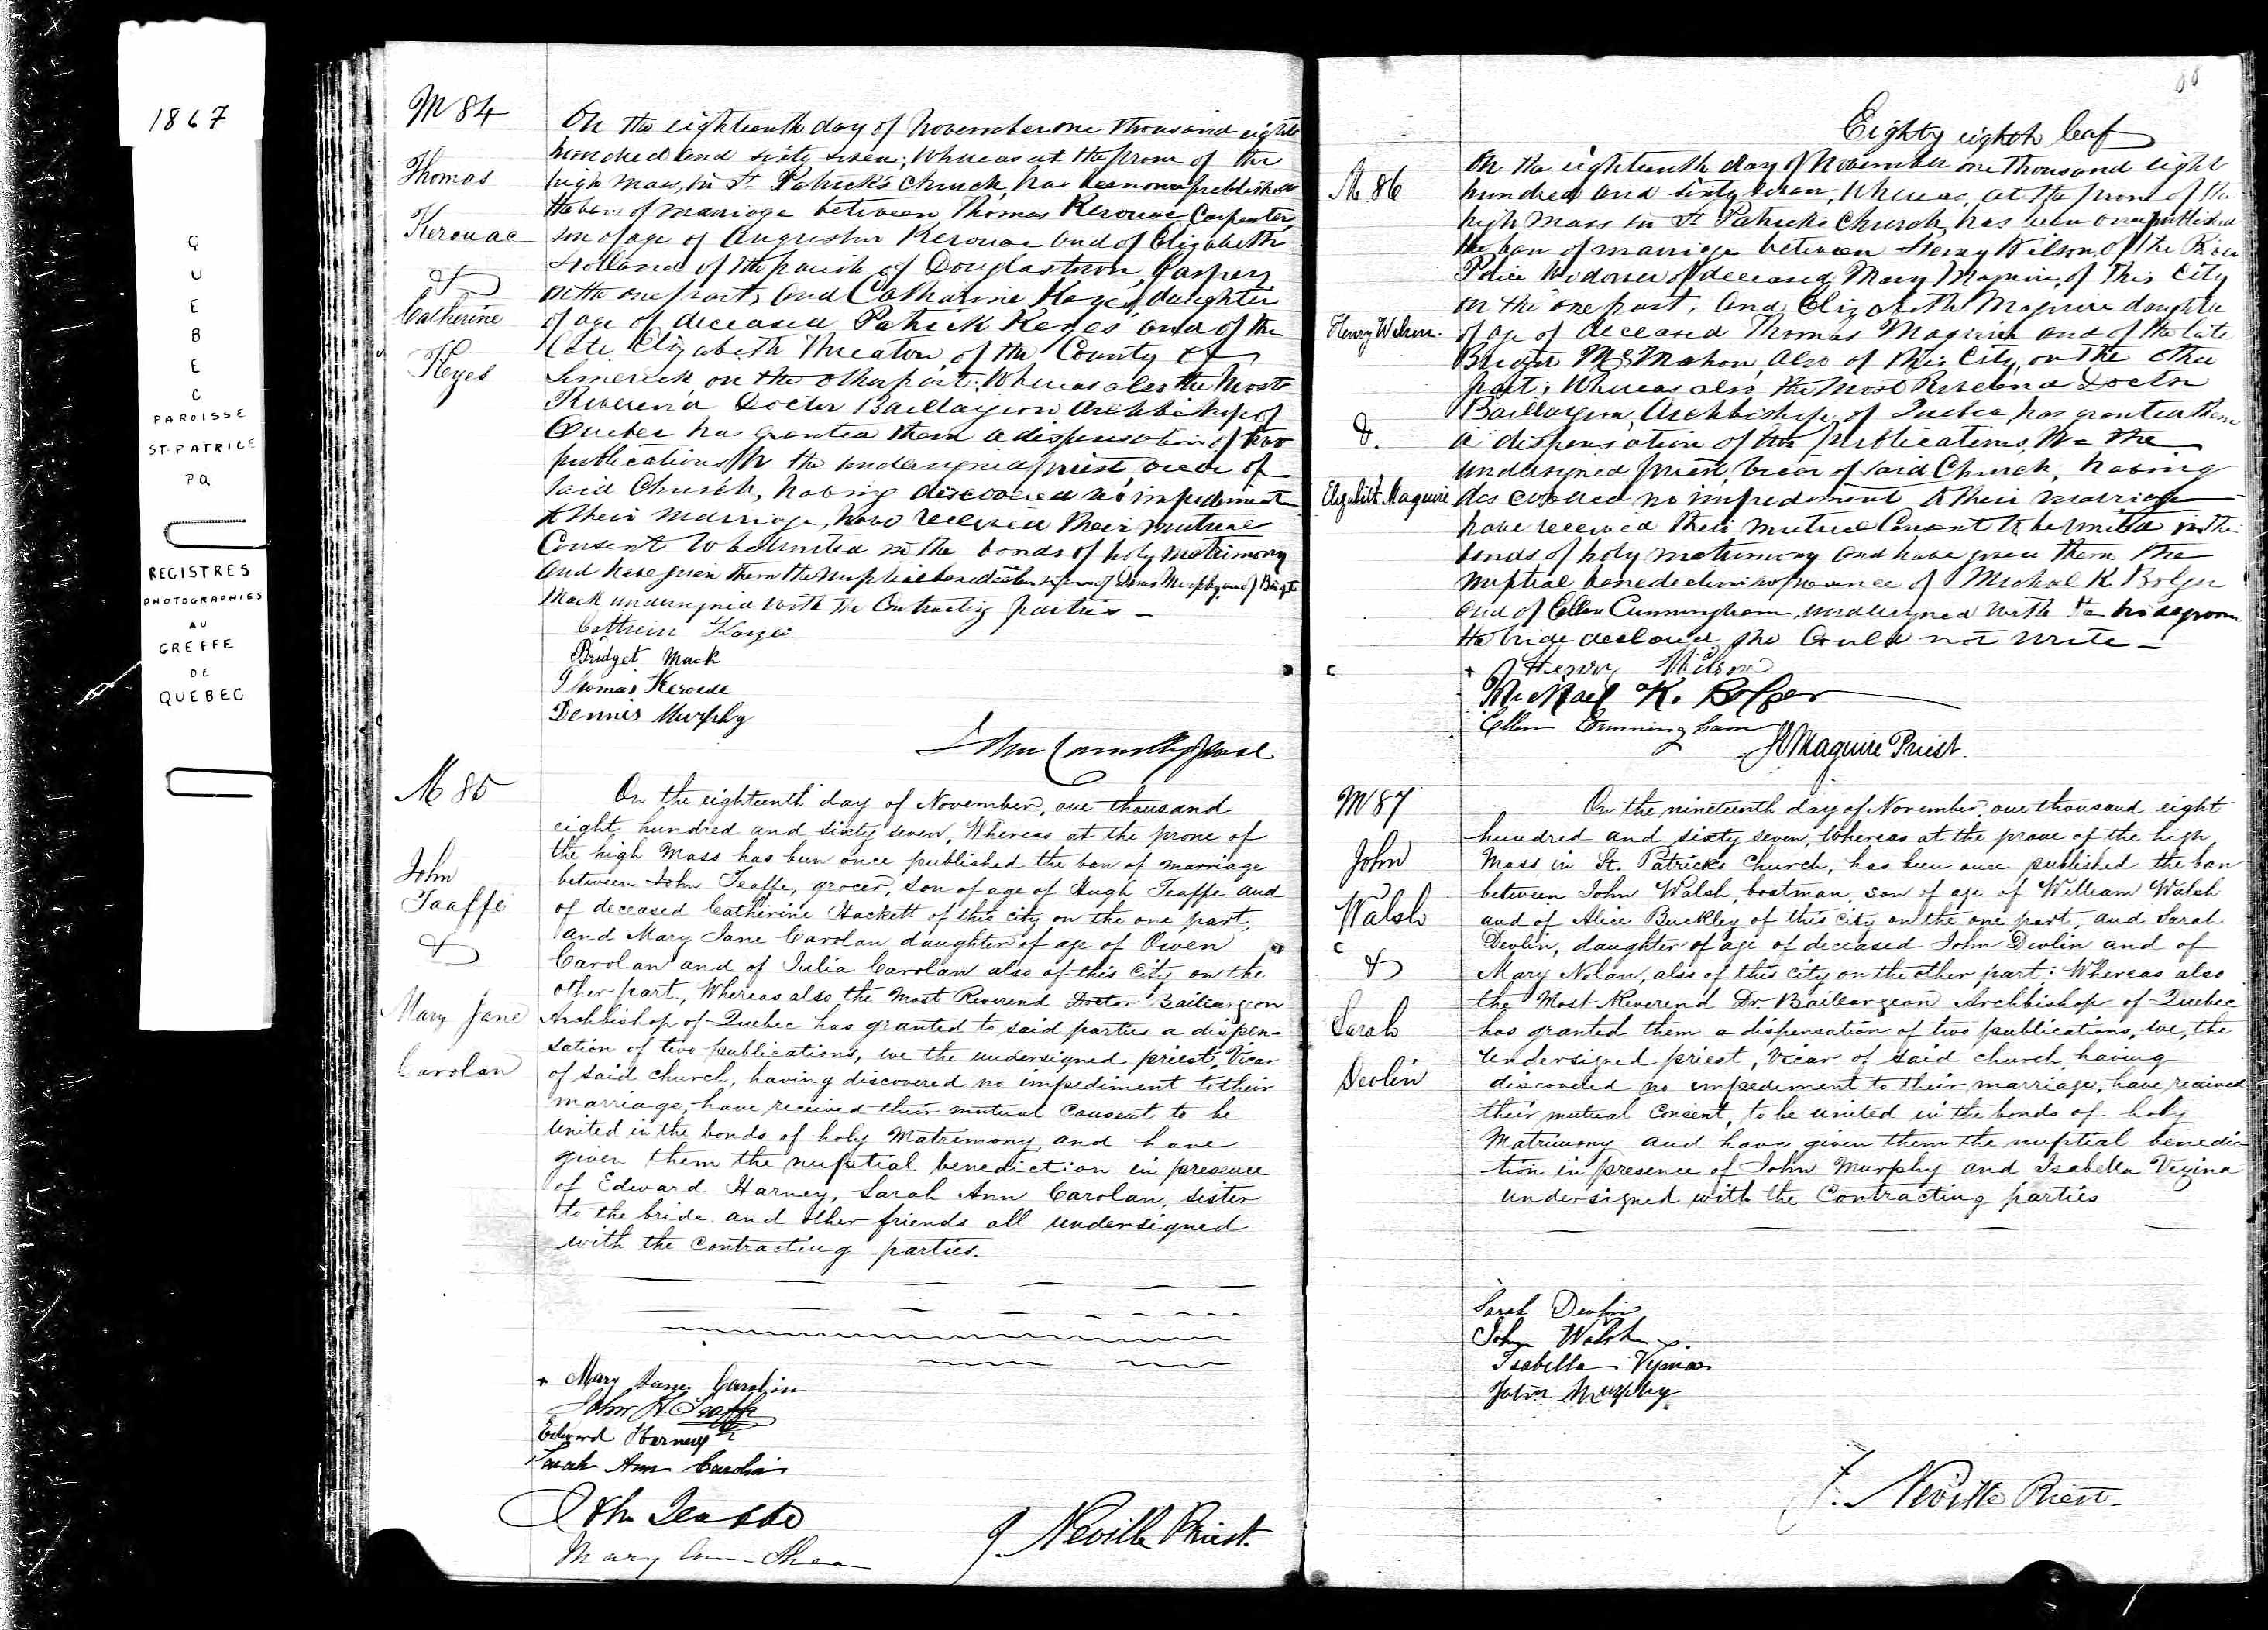 1867
QUEBEC
PAROISSE
ST-PATRICE
PQ
REGISTRES
PHOTOGRAPHIES
AU
GREFFE
DE
QUEBEC
M 84
Thomas
Kerouac
&
Catherine
Keyes
On the eighteenth day of November one thousand eight
hundred and sixty seven, Whereas at the prone of the
high mass, in St Patrick's Church, has been once published
the ban of marriage between Thomas Kerouac Carpenter,
son of age of Augustin Kerouac and of Elizabeth
Holland of the parish of Douglastown, Gaspey
on the one part, and Catharine Keyes, daughter
of age of deceased Patrick Keyes and of the
late Elizabeth Wheaton, of the County of
Limerick on the other part; Whereas also the Most
Reverend Doctor Baillargeon Archbishop of
Quebec has granted them a dispensation of two
publications, We the undersigned priest, vicar of
said Church, having discovered no impediment
to their marriage, have received their mutual
Consent to be united in the bonds of holy matrimony
and have given them the nuptial benediction in presence of Denis Murphy and of Bridget
Mack undersigned with the Contracting parties —
Cathrein
Bridget Mack
Thomas
Dennis Murphy
John
M 85
John
Taaffe
&
Mary Jane
Carolan
On the eighteenth day of November, one thousand
eight hundred and sixty seven, Whereas at the prone of
the high Mass has been once published the ban of marriage
between John Teaffe, grocer, son of age of Hugh Teaffe and
of deceased Catherine Hackett of this city on the one part,
and Mary Jane Carolan daughter of age of Owen
Carolan and of Julia Carolan also of this City on the
other part, Whereas also the Most Reverend Doctor Baillargeon
Archbishop of Quebec has granted to said parties a dispen-
sation of two publications, we the undersigned priest, Vicar
of said church, having discovered no impediment to their
marriage, have received their mutual consent to be
united in the bonds of holy Matrimony and have
given them the nuptial benediction in presence
of Edward Harney, Sarah Ann Carolan, sister
to the bride and other friends all undersigned
with the contracting parties.
+ Mary Jane Carolin
John H Teaffe
Edward Harney
Sarah Ann Carolin
John Teaffe
Mary Ann Shea
J. Neville Priest.
88
Eighty eighth leaf
M 86
Henry Wilson.
&.
Elizabeth Maguire
On the eighteenth day of November one thousand eight
hundred and sixty seven, Whereas, at the prone of the
high mass in St Patrick's Church, has been once published
the ban of marriage between Henry Wilson, of the River
Police Widower of deceased Mary Maguire, of this City
on the one part, and Elizabeth Maguire daughter
of age of deceased Thomas Maguire and of the late
Bridget McMahon, also of this City, on the other
part; Whereas also the Most Reverend Doctor
Baillargeon, Archbishop of Quebec, has granted them
a dispensation of two publications, We the
undersigned priest, Vicar of said Church, having
discovered no impediment to their marriage
have received their mutual Consent to be united in the
bonds of holy matrimony and have given them the
nuptial benediction in presence of Michael K Bolger
and of Ellen Cunningham, undersigned with the bridegroom
the bride declared she could not write —
+ Henry Wilson
Michael K. Bolger
Ellen Cunningham
Maguire Priest.
M 87
John
Walsh
&
Sarah
Devlin
On the nineteenth day of November, one thousand eight
hundred and sixty seven, Whereas at the prone of the high
Mass in St. Patrick's Church, has been once published the ban
between John Walsh, boatman, son of age of William Walsh
and of Alice Buckley of this city on the one part, and Sarah
Devlin, daughter of age of deceased John Devlin and of
Mary Nolan, also of this city on the other part: Whereas also
the Most Reverend Dr. Baillargeon Archbishop of Quebec
has granted them a dispensation of two publications, we, the
undersigned priest, Vicar of said church, having
discovered no impediment to their marriage, have received
their mutual consent, to be united in the bonds of holy
Matrimony and have given them the nuptial benedic-
tion in presence of John Murphy and Isabella Vezina
undersigned with the Contracting parties
Sarah Devlin
John Walsh
Isabella
John Murphy
J. Neville Priest.